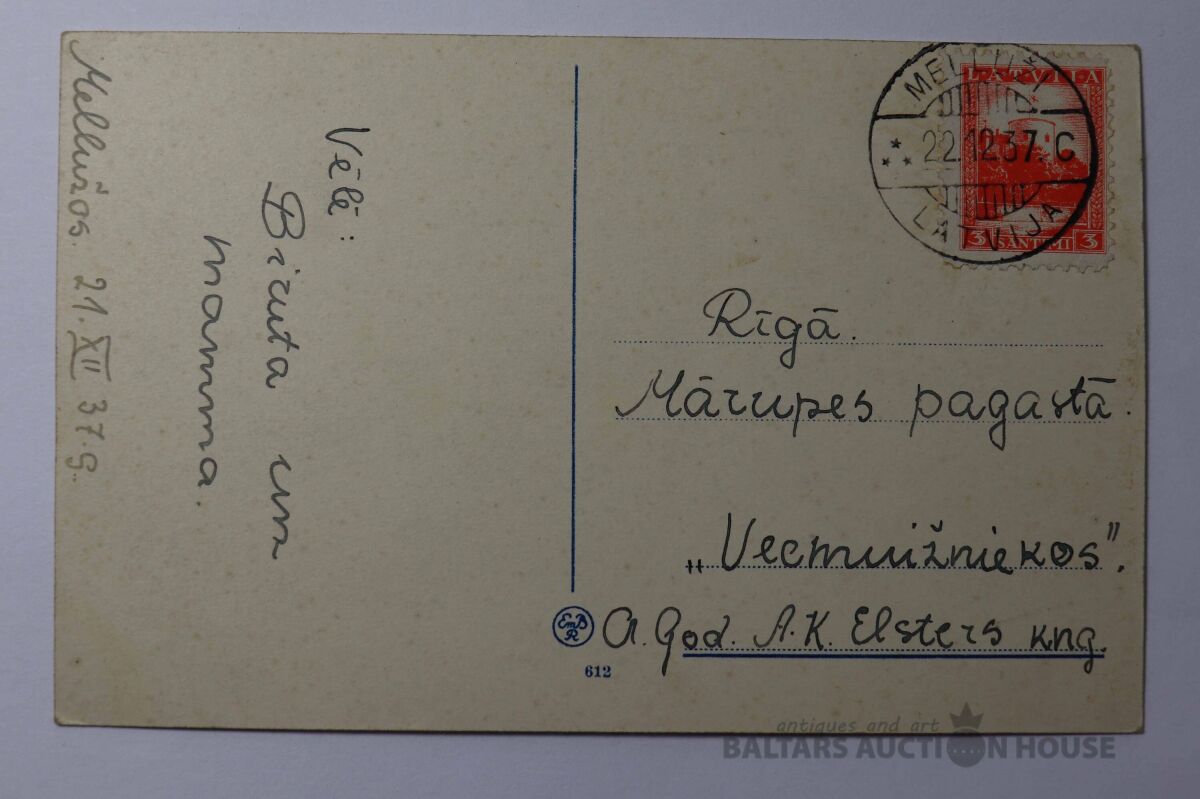 Mellužos. 21. XII 37.g.
Vēlē:
Biruta un
mamma.
MELLUŽI
22.12.37. C
LATVIJA
LATVIJA
3 SANTIMI 3
Rīgā.
Mārupes pagastā.
„Vecmuižniekos”.
A. God. A.K. Elsters kng.
EmBR
612
antiques and art
BALTARS AUCTION HOUSE